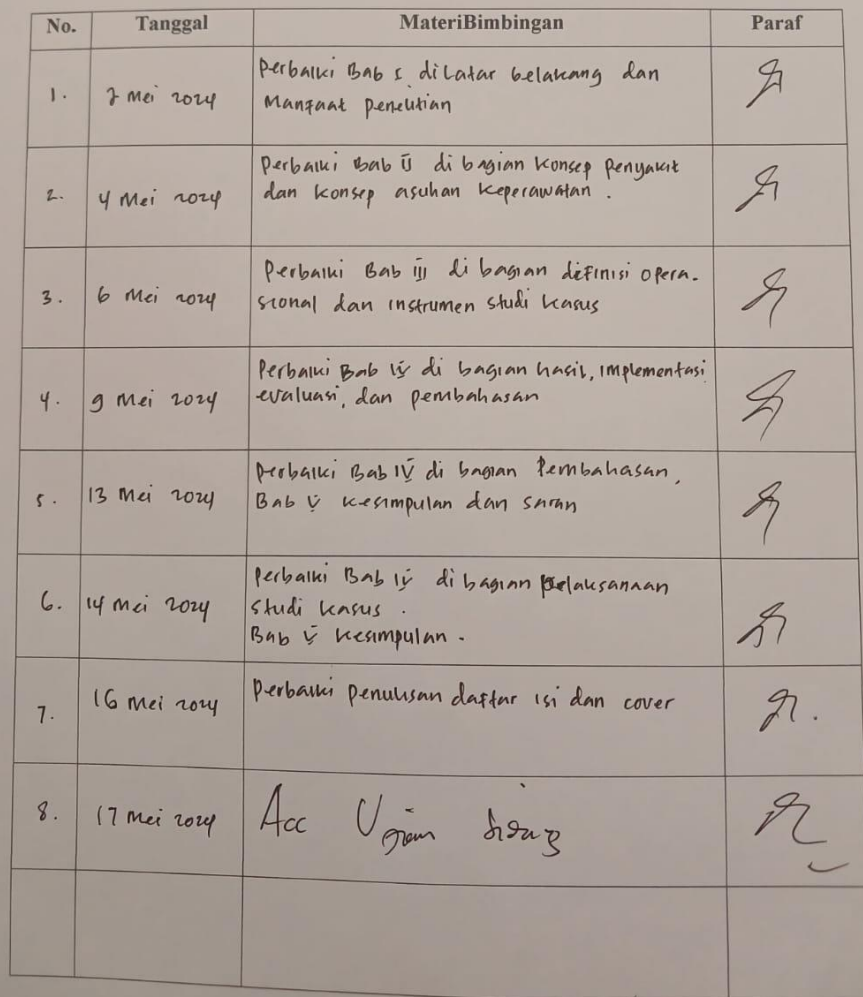 No. Tanggal MateriBimbingan Paraf
1. 2 Mei 2024 Perbaiki Bab I di Latar belakang dan
Manfaat penelitian
2. 4 Mei 2024 Perbaiki Bab II di bagian Konsep Penyakit
dan Konsep asuhan Keperawatan.
3. 6 Mei 2024 Perbaiki Bab III di bagian definisi opera-
sional dan instrumen studi kasus
4. 9 Mei 2024 Perbaiki Bab IV di bagian hasil, implementasi
evaluasi, dan pembahasan
5. 13 Mei 2024 Perbaiki Bab IV di bagian Pembahasan,
Bab V kesimpulan dan saran
6. 14 Mei 2024 Perbaiki Bab IV di bagian pelaksanaan
studi kasus.
Bab V kesimpulan.
7. 16 Mei 2024 Perbaiki penulisan daftar isi dan cover
8. 17 Mei 2024 Acc Ujian Sidang